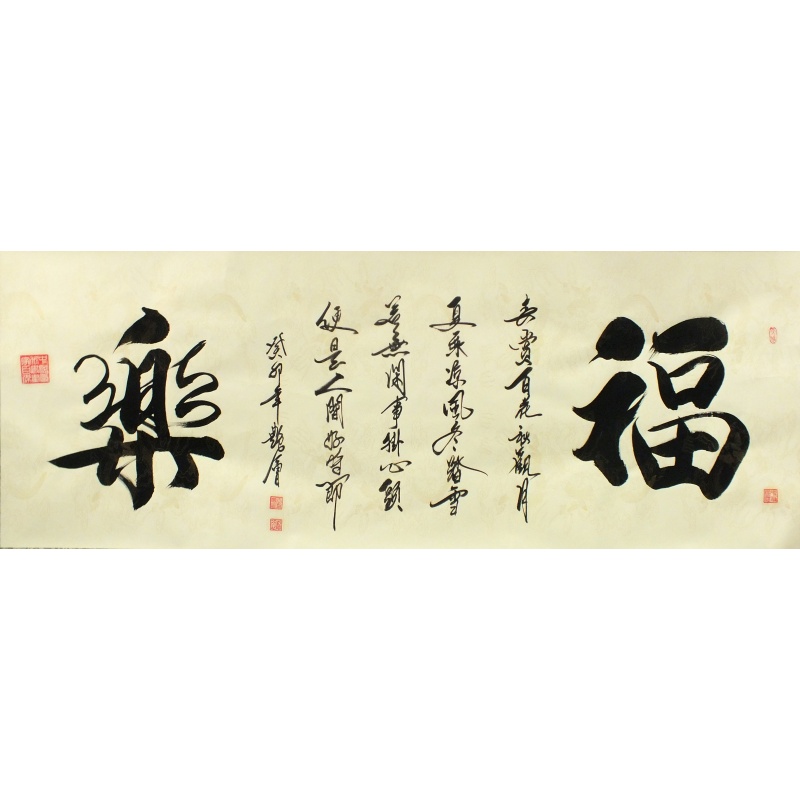 福
春赏百花秋觀月
夏乘凉風冬踏雪
若無閑事掛心頭
便是人間好時節
癸卯年
樂